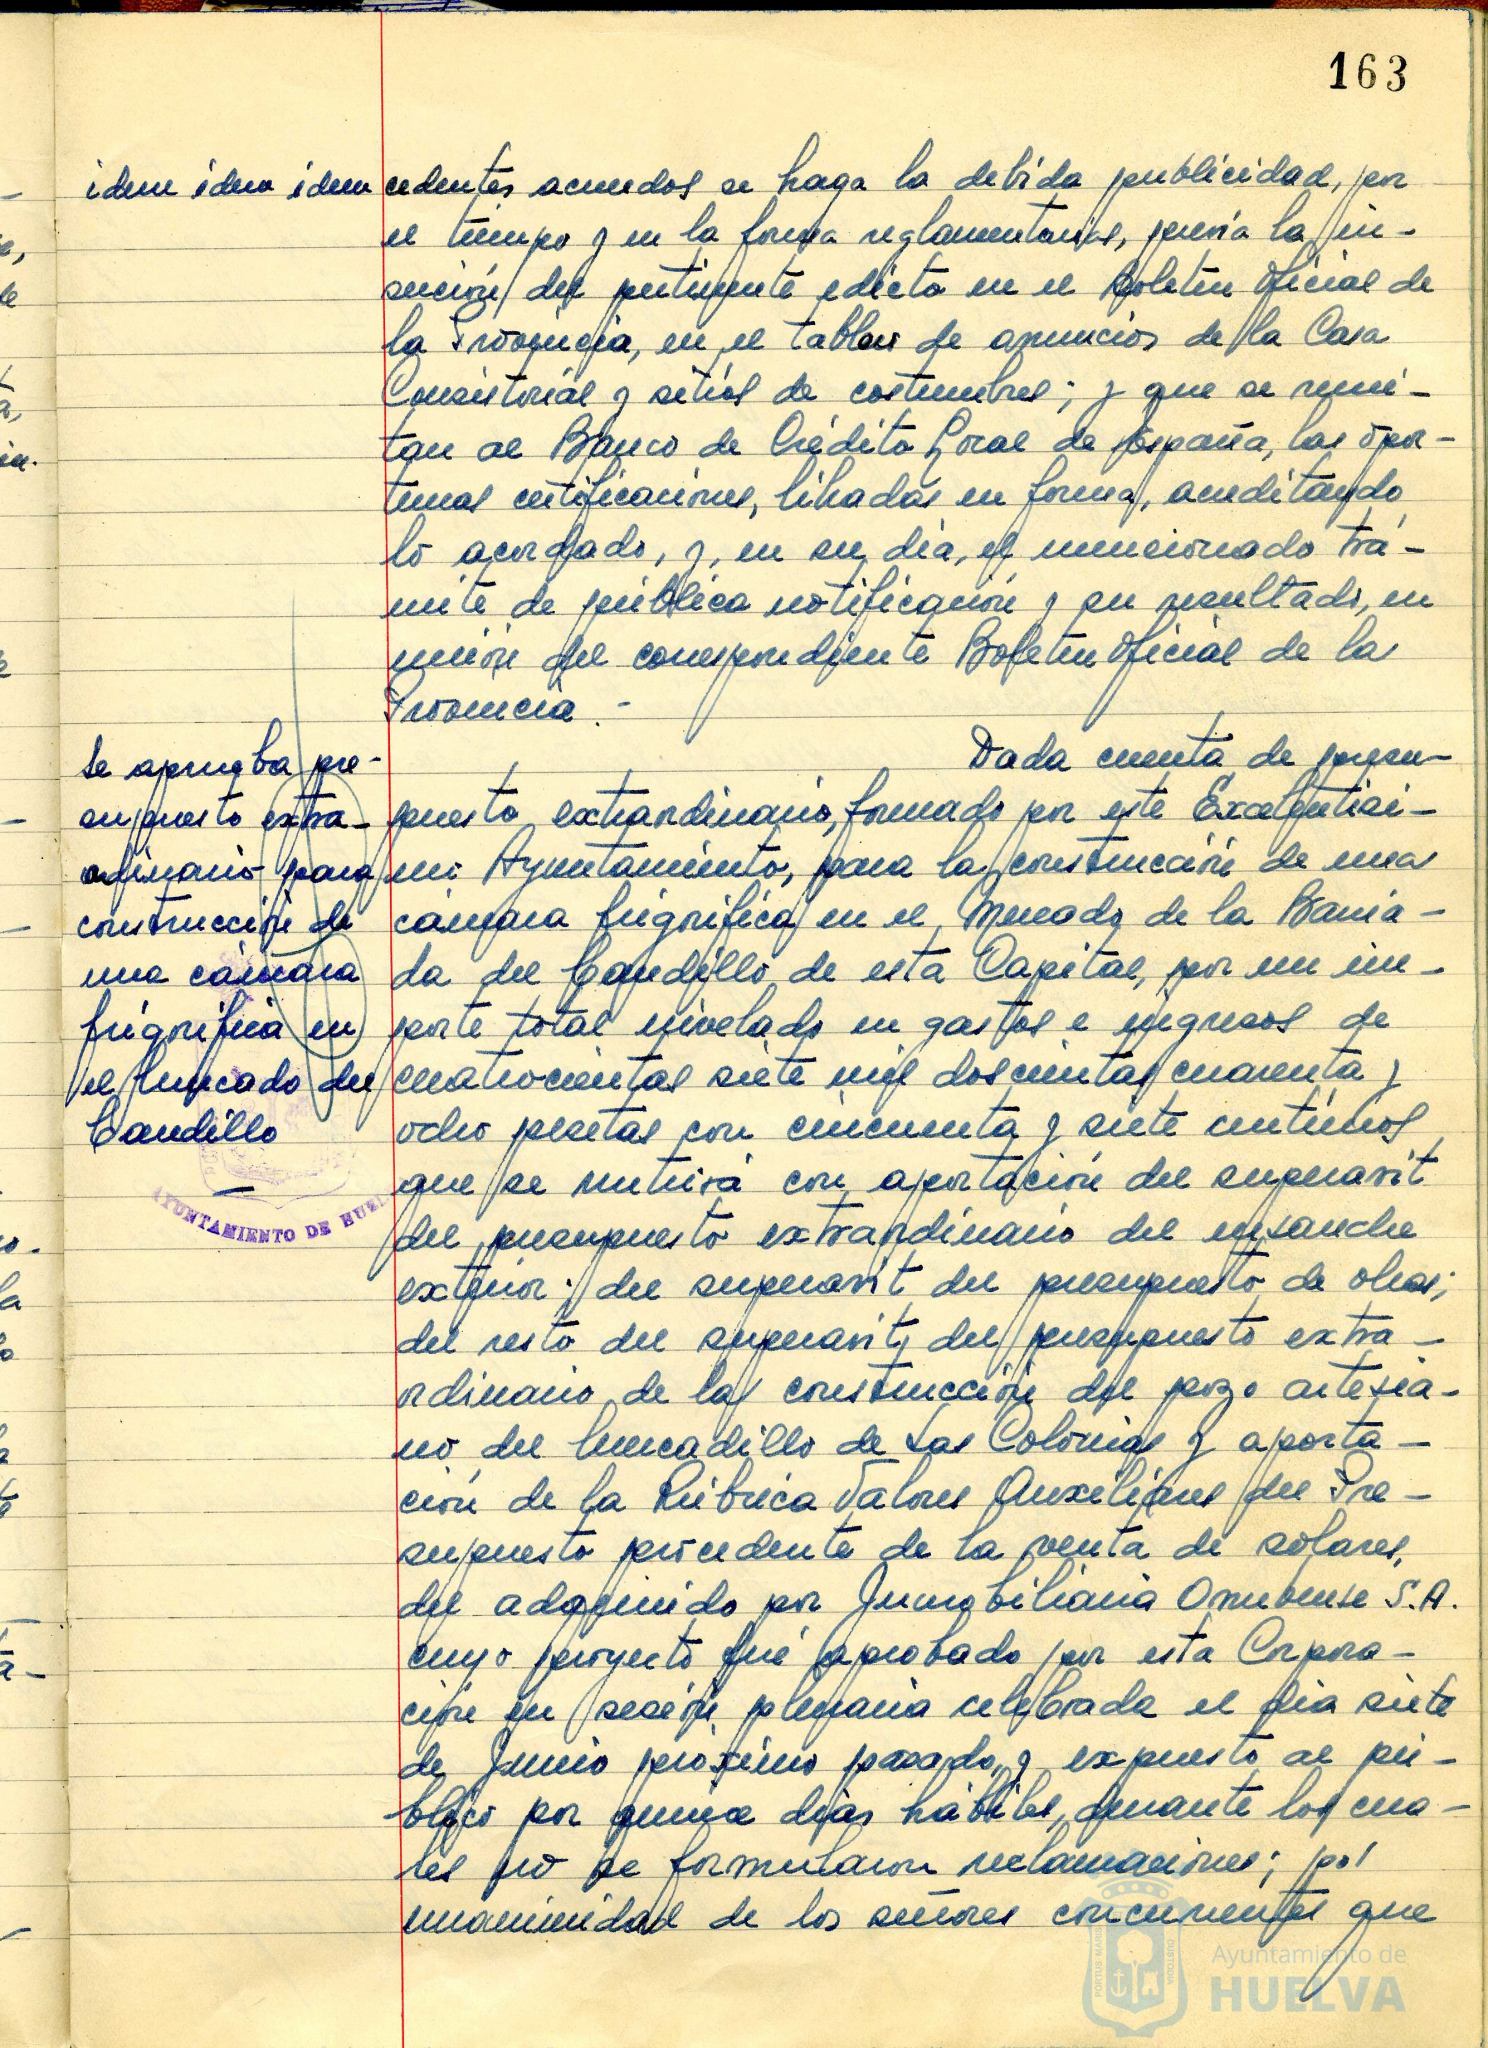 163
idem idem idem
cedentes acuerdos se haga la debida publicidad, por
el tiempo y en la forma reglamentarias, previa la in-
serción del pertinente edicto en el Boletin Oficial de
la Provincia, en el tablero de anuncios de la Casa
Consistorial y sitios de costumbres; y que se remi-
tan al Banco de Crédito Local de España, las opor-
tunas certificaciones, libradas en forma, acreditando
lo acordado, y, en su día, el mencionado trá-
mite de pública notificación y su resultado, en
unión del correspondiente Boletin Oficial de la
Provincia.-
Se aprueba pre-
supuesto extra-
ordinario para
construcción de
una cámara
frigorifica en
el mercado del
Caudillo
—
Dada cuenta de presu-
puesto extraordinario, formado por este Excelentisi-
mo Ayuntamiento, para la construcción de una
cámara frigorifica en el Mercado de la Barria-
da del Caudillo de esta Capital, por un im-
porte total nivelado en gastos e ingresos de
cuatrocientas siete mil doscientas cuarenta y
ocho pesetas con cincuenta y siete centimos,
que se nutrirá con aportación del superavit
del presupuesto extraordinario del ensanche
exterior; del superavit del presupuesto de obras;
del resto del superavit, del presupuesto extra-
ordinario de la construcción del pozo artesia-
no del Mercadillo de Las Colonias y aporta-
ción de la Rúbrica Valores Auxiliares del Pre-
supuesto procedente de la venta de solares,
del adquirido por Inmobiliaria Onubense S.A.
cuyo proyecto fué aprobado por esta Corpora-
ción en sesión plenaria celebrada el dia siete
de Junio próximo pasado, y expuesto al pú-
blico por quince dias hábiles, durante los cua-
les no se formularon reclamaciones; por
unanimidad de los señores concurrentes que
AYUNTAMIENTO DE HUEL
PORTUS MARIS
CUSTODIA
Ayuntamiento de
HUELVA